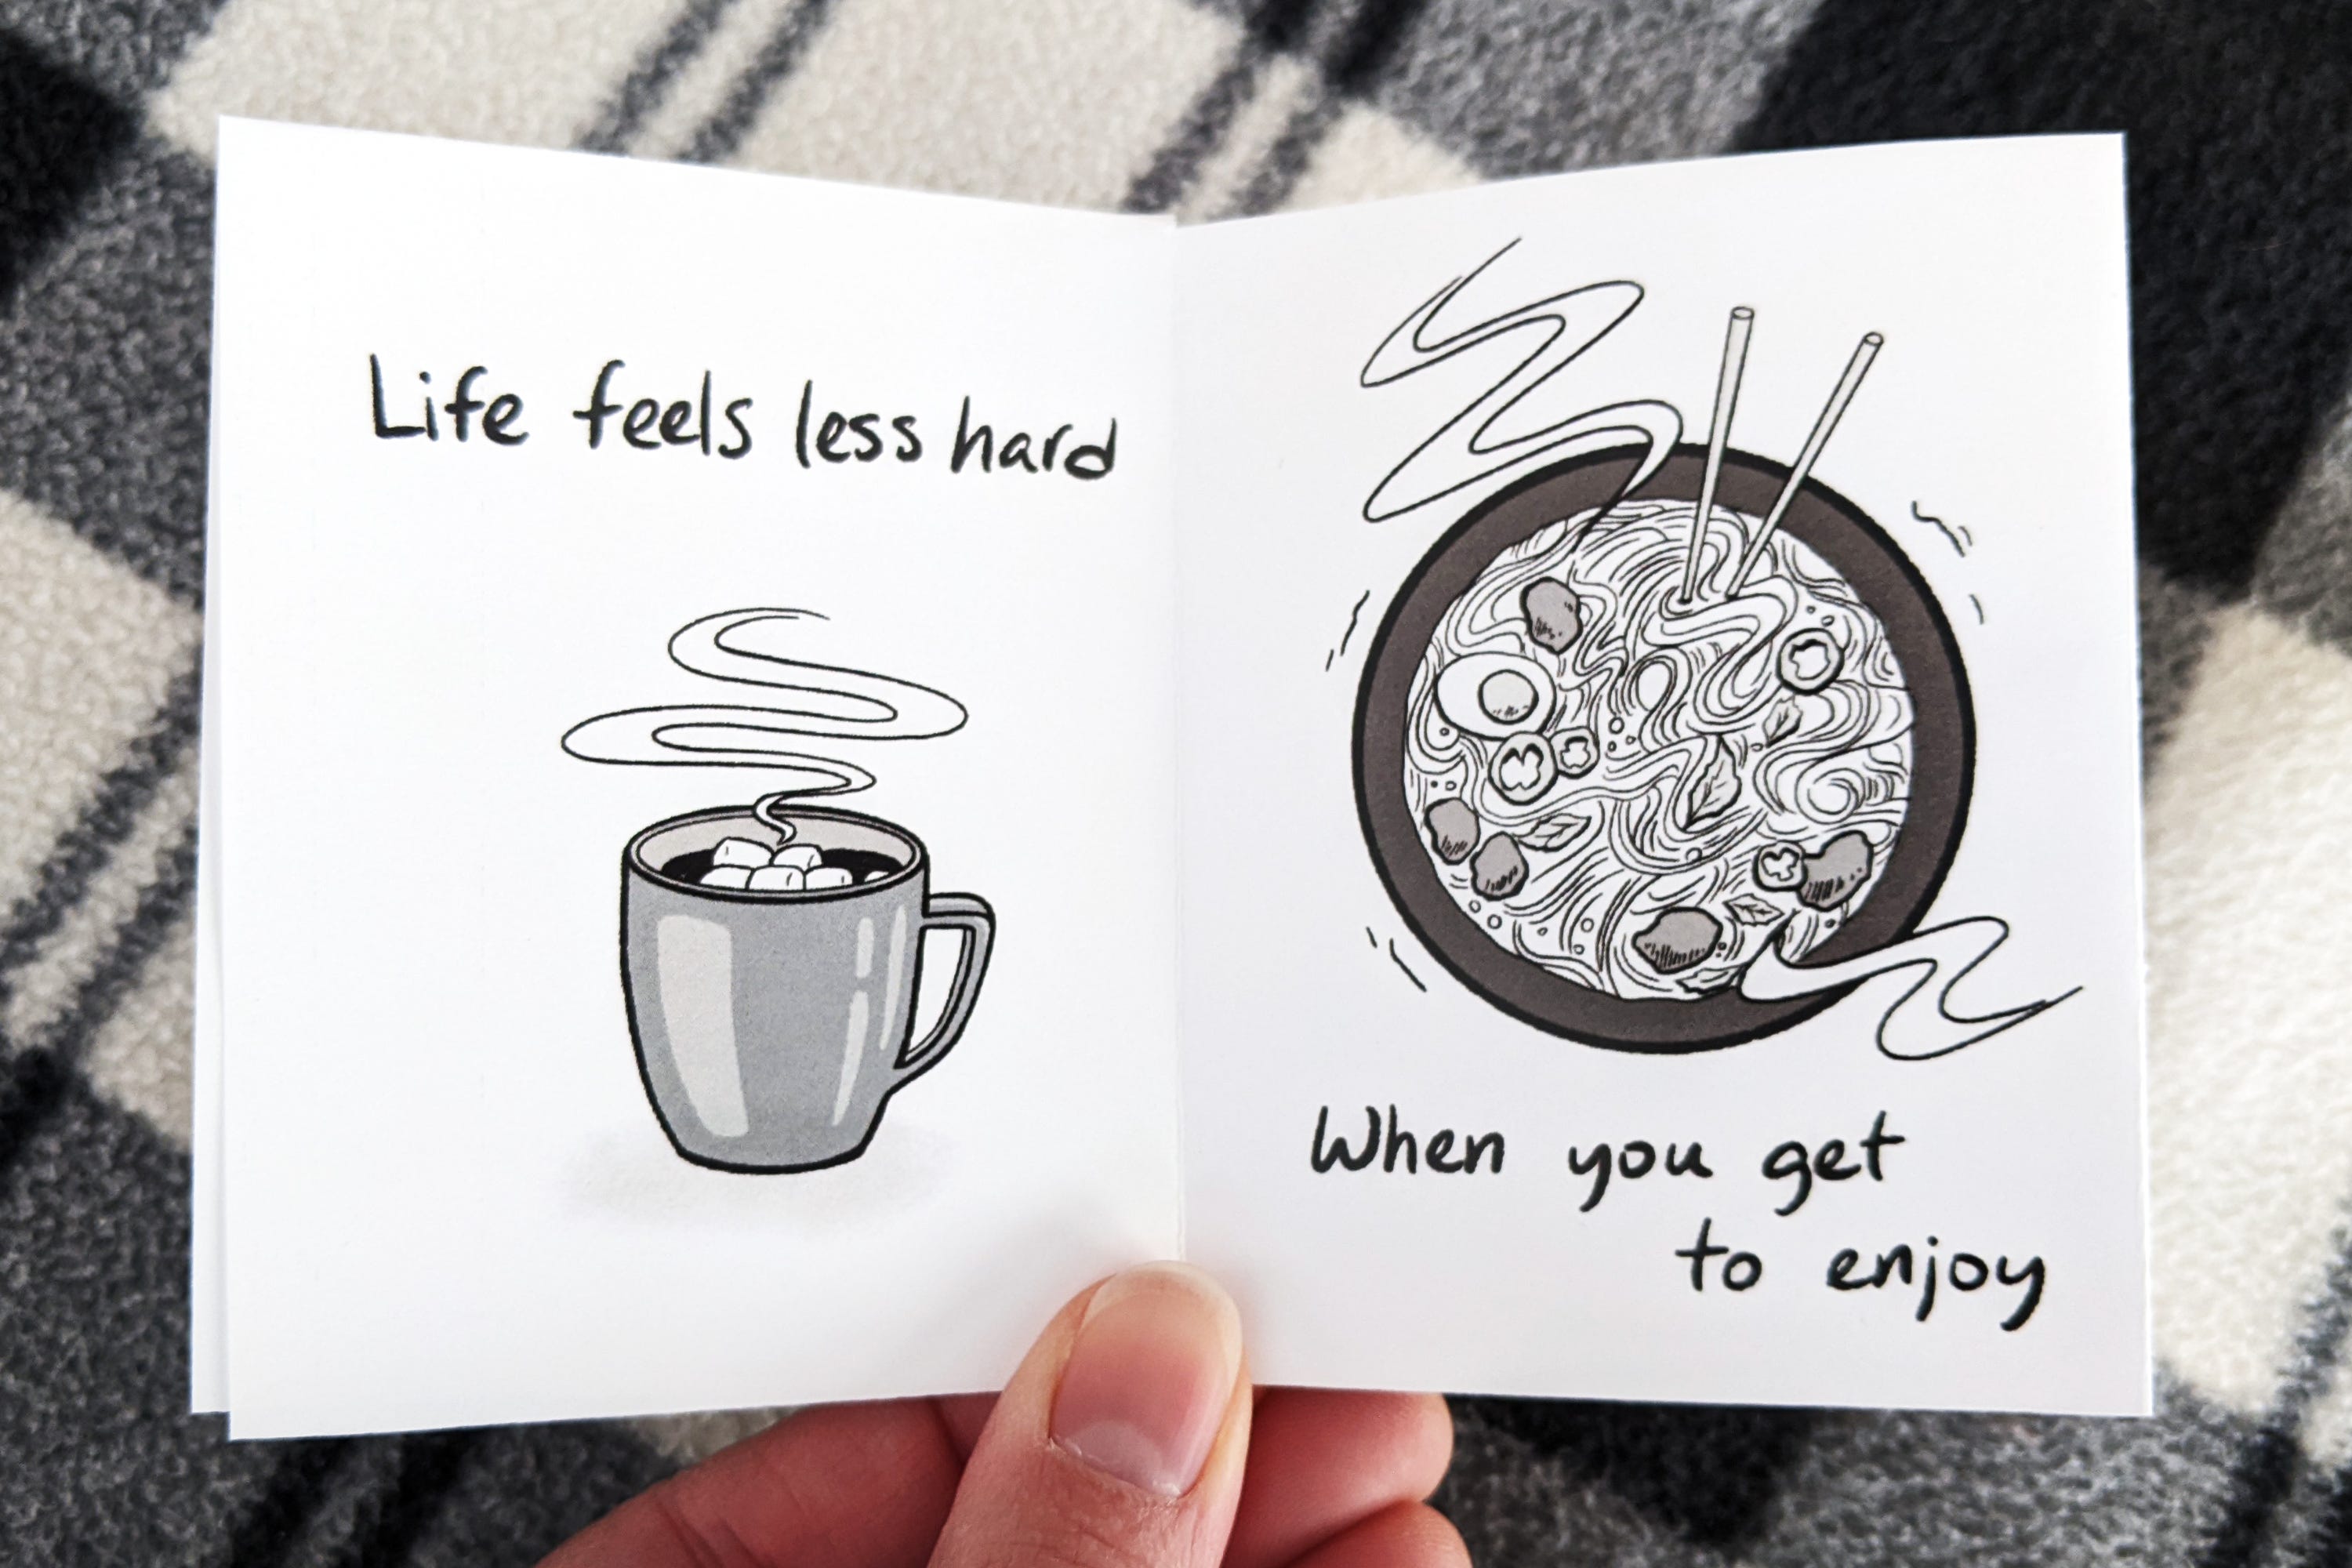 Life feels less hard
When you get
to enjoy